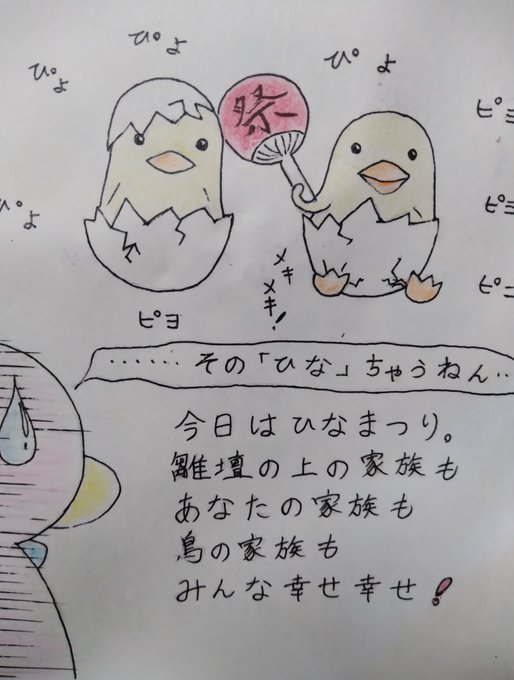 ぴょ
ぴょ
ぴょ
祭
ピヨ
ぴょ
ピヨ
メキ
メキ!
ピヨ
‥‥‥その「ひな」ちゃうねん‥
今日はひなまつり。
雛壇の上の家族も
あなたの家族も
鳥の家族も
みんな幸せ幸せ!